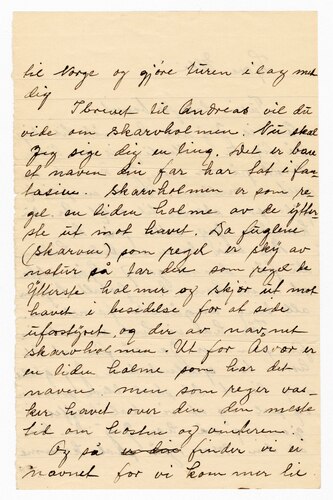 til Norge og gjöre turen i lag met
dig
I brevet til Andreas vil du
vide om Skarvholmen. Nu skal
Jeg sige dig en ting. Det er bare
et naven din far har tat i fan-
tasien. Skarvholmen er som re-
gel en liden holme av de ytter-
ste ut mot havet. Da fuglene
(Skarven) som regel er sky av
natur så tar den som regel de
Ytterste holmer og skjær ut mot
havet i besidelse for at side
uforstyret, og der av navnet
skarvholmen. Ut for Asvær er
en liden holme som har det
naven men som reger vas-
ker havet over den den meste
tid om hosten og vinteren.
Og så finder vi ei
navnet for vi kommer til